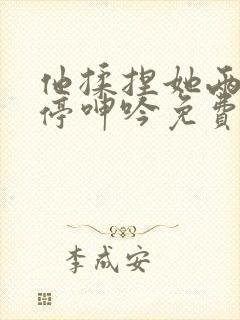 他揉捏她两
停呻吟免费
李成安